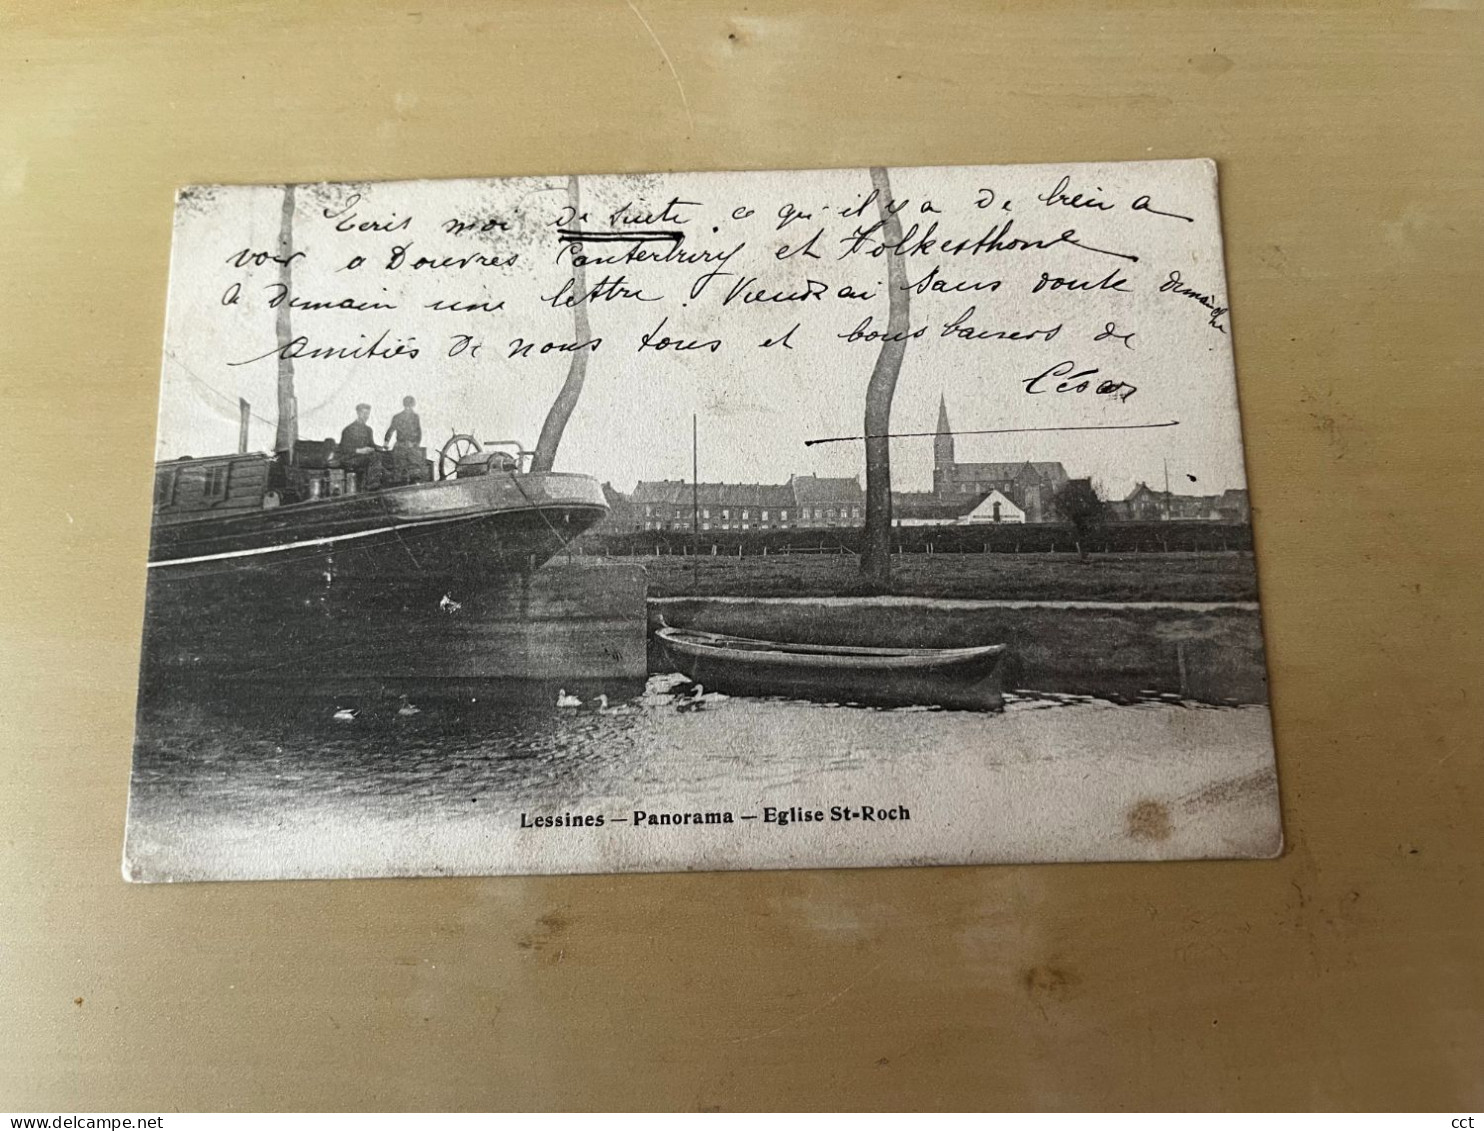 Ecris moi de suite ce qu'il y a de bien a
voir a Douvres Canterbury et Folkesthone
a demain une lettre. Viendrai sans doute dimanche
Amitiés de nous tous et bons baisers de
César
Lessines — Panorama — Eglise St-Roch
cct